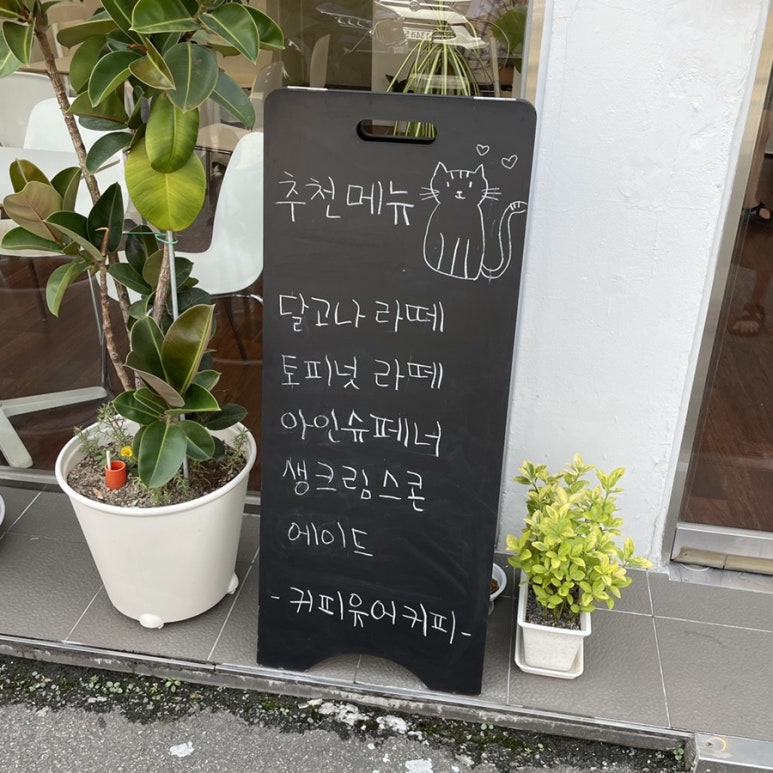 추천메뉴
달고나 라떼
토피넛 라떼
아인슈페너
생크림스콘
에이드
- 커피유어커피 -